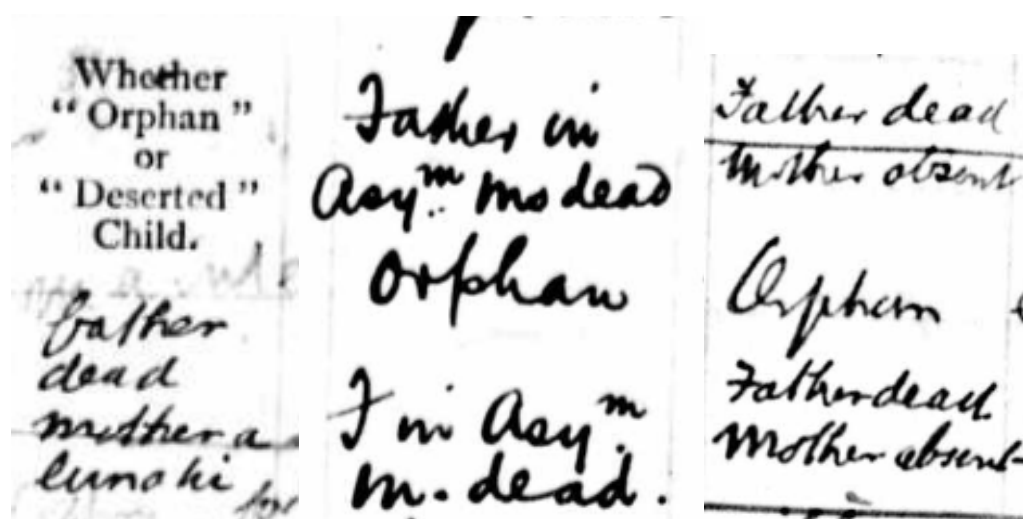 Whether
“ Orphan ”
or
“ Deserted ”
Child.
father
dead
mother a
lunatic
Father in
Asyᵐ. Mo dead
Orphan
F in Asyᵐ.
M. dead.
Father dead
Mother absent
Orphan
Father dead
Mother absent